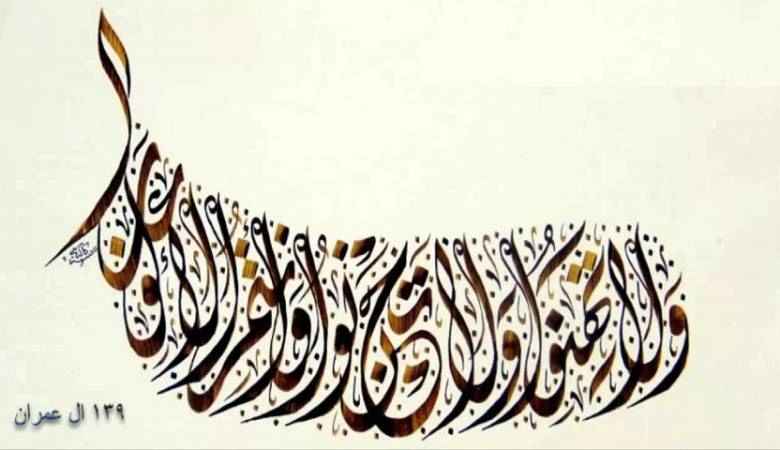 ولا تهنوا ولا تحزنوا وانتم الأعلون
١٣٩ ال عمران